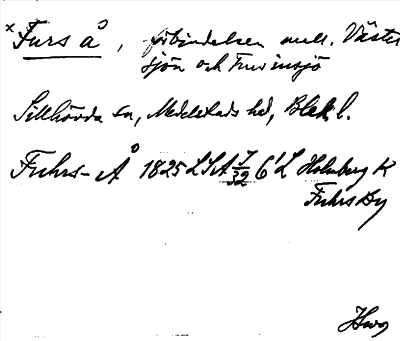 ×Furs å, förbindelsen mell. Väster
sjön och Furensjö
Sillhövda sn, Medelstads hd, Blek. l.
Fuhrs-Å 1825 LSA 7/32 6'L Holmberg K
Fuhrs By